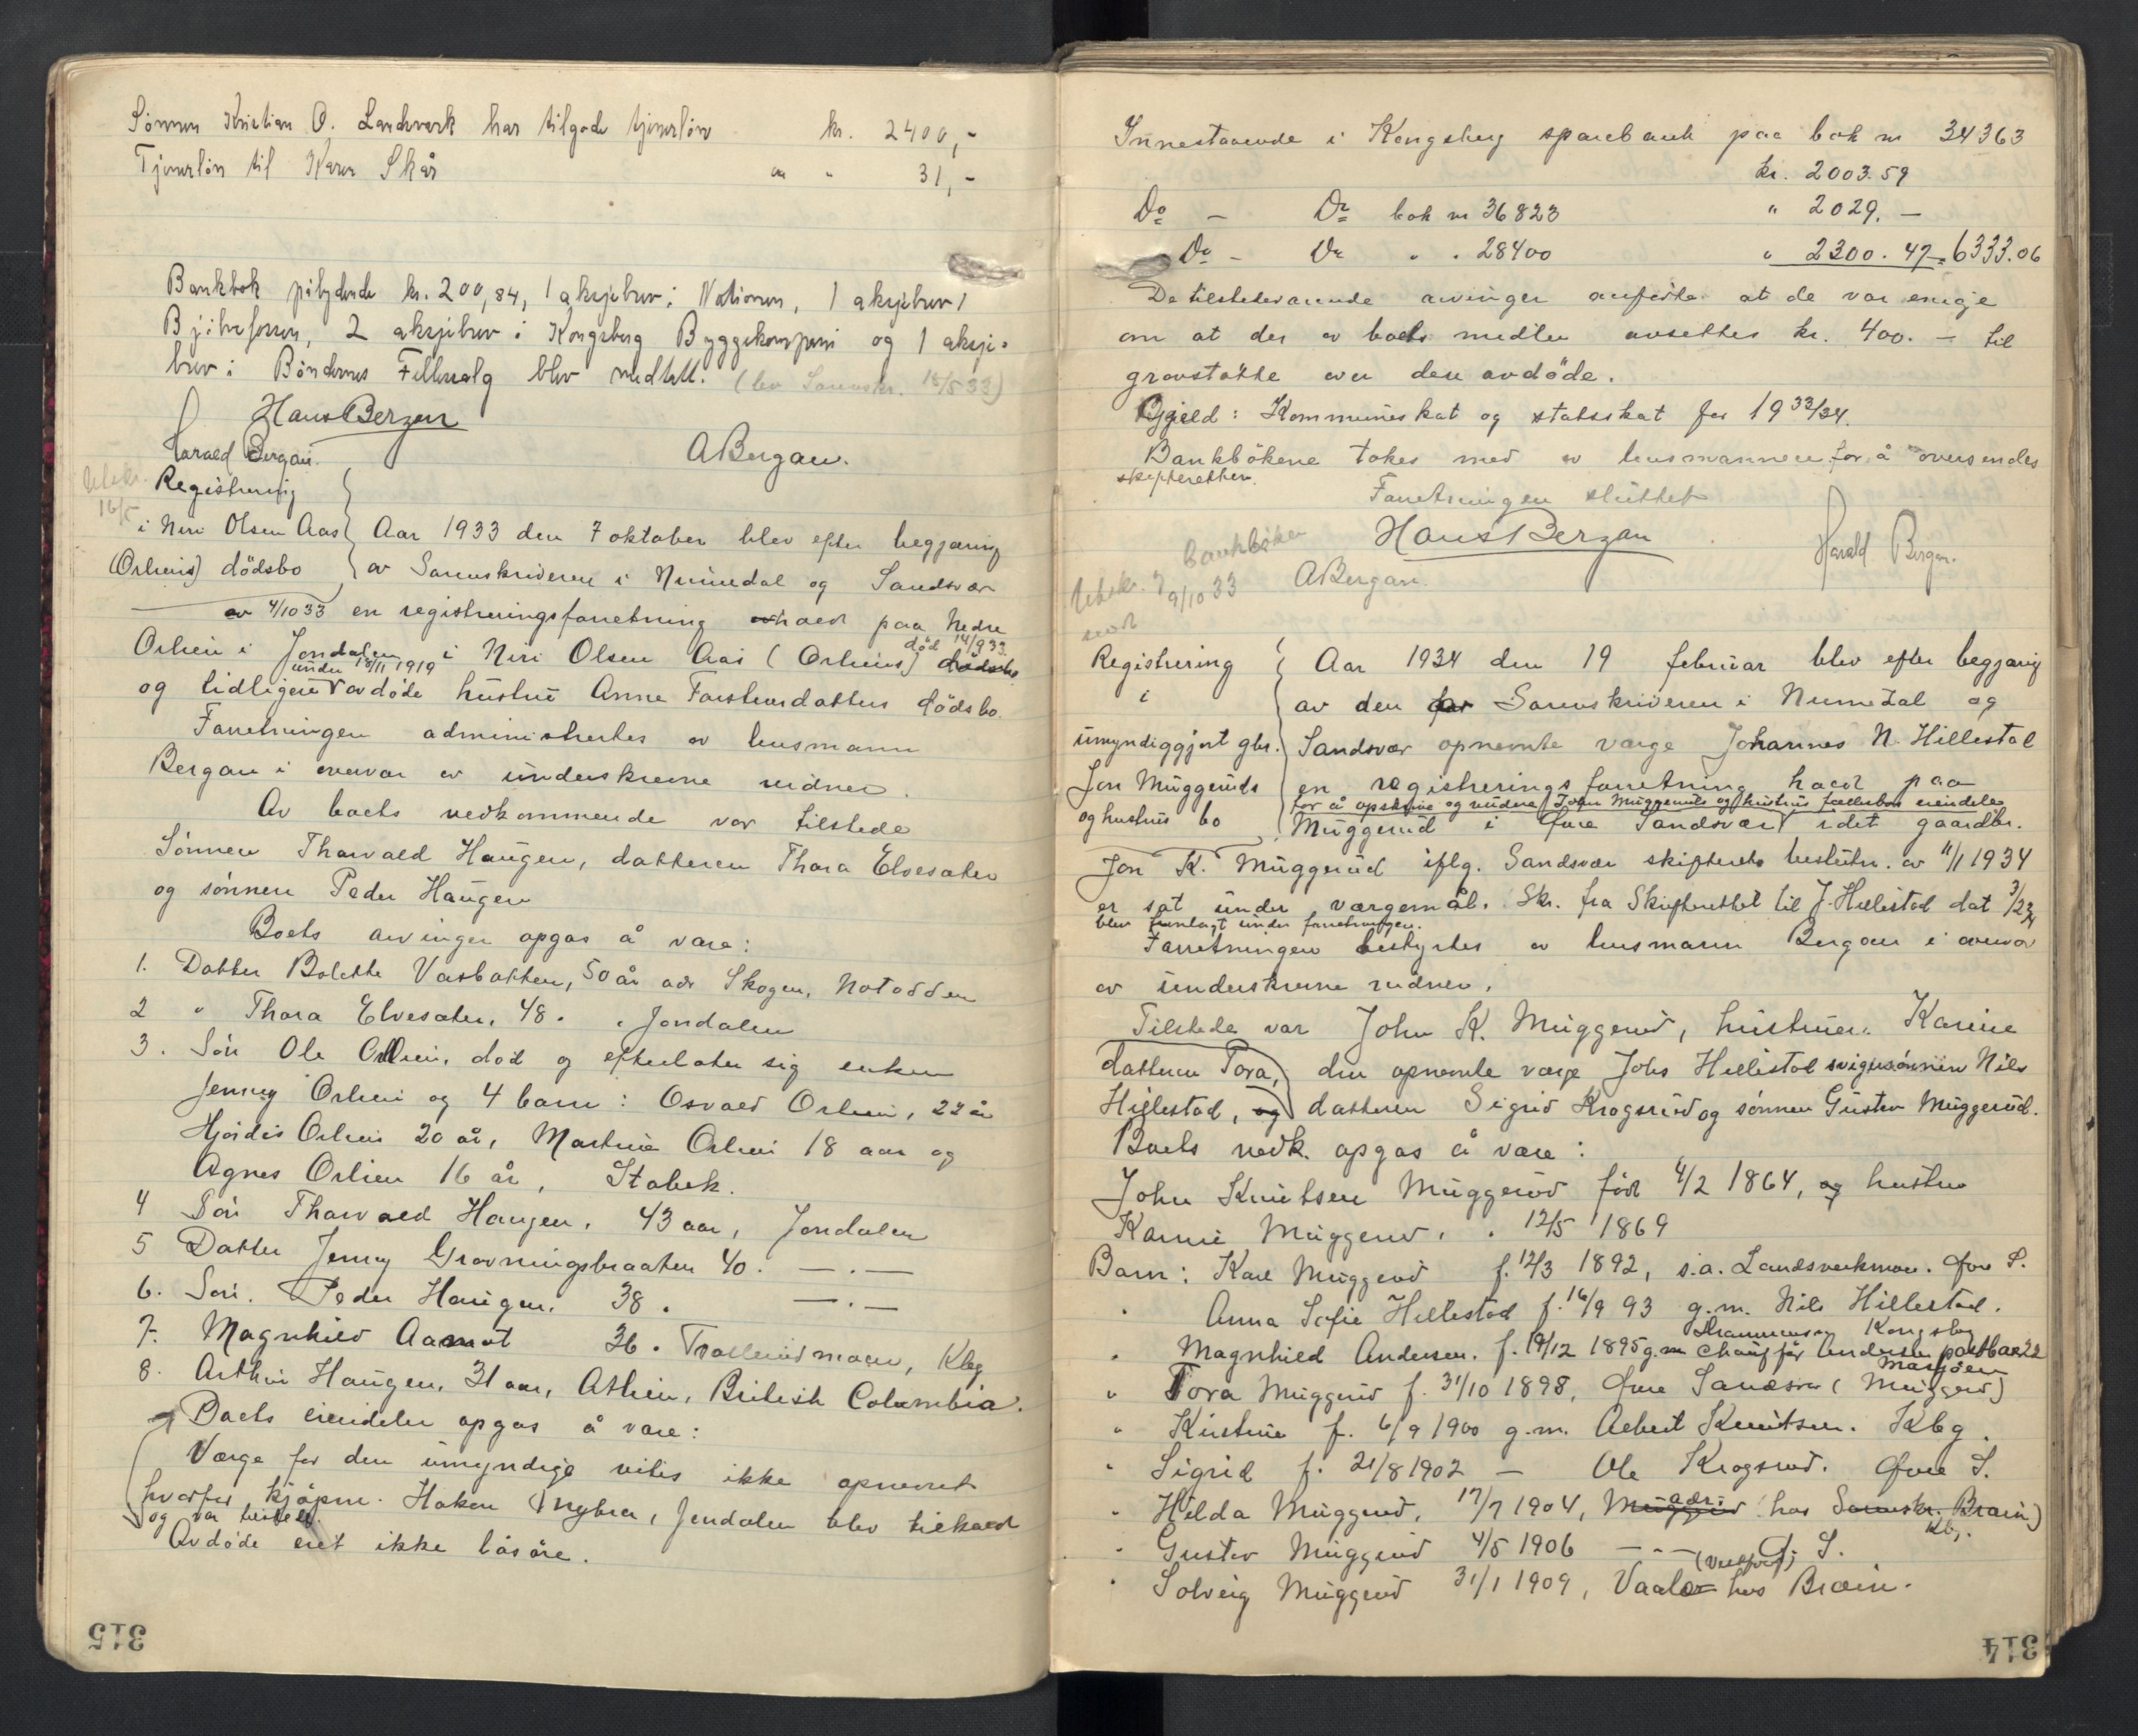 Sönnen Kristian O. Landverk har tilgode tjenerlön kr. 2400,-
Tjenerlön til Karen Skår " " 31,-
Bankbok pålydende kr. 200,84, 1 aksjebrev i Nationen, 1 aksjebrev i
Bjölsefossen, 2 aksjebrev i Kongsberg Byggekompani og 1 aksje-
brev i Böndernes Fellessalg blev medtatt. (lev Sorenskr. 15/5 33)
Hans Bergan
Harald Bergan. A Bergan.
Utskr.
16/5
Registrering
i Neri Olsen Aas Aar 1933 den 7 oktober blev efter begjæring
(Orliens) dödsbo av Sorenskriveren i Numedal og Sandsvær
av 4/10 33 en registreringsforretning avhold paa Nedre
död 14/9 33.
Orlien i Jondalen i Neri Olsen Aas (Orliens) dödsbo
under 18/11 1919
og tidligere avdöde hustru Anne Torstensdatters dödsbo.
Forretningen administrertes av lensmann
Bergan i overvær av underskrevne vidner.
Av boets vedkommende var tilstede
Sönnen Thorvald Haugen, datteren Thora Elvesæter
og sönnen Peder Haugen
Boets arvinger opgas å være:
1. Datter Bolette Vasbotten, 50 år adr Skogen, Notodden
2 " Thora Elvesæter, 48 " " Jondalen
3. Sön Ole Orlien, död og efterlater sig enken
Jenny Orlien og 4 barn: Osvald Orlien, 22 år
Hjördis Orlien 20 år, Martine Orlien 18 aar og
Agnes Orlien 16 år, Stabek.
4 Sön Thorvald Haugen, 43 aar, Jondalen
5 Datter Jenny Grovningsbraaten 40. — . —
6. Sön. Peder Haugen, 38. — . —
7. Magnhild Aamot 36. Trollerudmoen, Kbg
8. Arthur Haugen, 31 aar, Athin, British Columbia.
Boets eiendeler opgas å være:
Verge for den umyndige vites ikke opnevnt
hvorfor kjöpm. Hakon Myhra, Jondalen blev tilkalt
og var tilstede.
Avdöde eiet ikke läsöre.
315
Innestaaende i Kongsberg sparebank paa bok nr 34363
kr. 2003.59
Do — Do bok nr 36823 " 2029. —
Do — Do " " 28400 " 2300.47 = 6333.06
De tilstedeværende arvinger anförte at de var enige
om at der av boets midler avsettes kr. 400.— til
gravstötte over den avdöde.
Gjeld: Kommuneskat og statsskat for 1933/34.
Bankbökene tokes med av lensmannen for å oversendes
skifteretten.
Forretningen sluttet
Hans Bergan Harald Bergan.
A Bergan.
Utskr. 9/10 33
bankböker
sendt
Registrering Aar 1934 den 19 februar blev efter begjæring
i av den for Sorenskriveren i Numedal og
umyndiggjort gbr. Sandsvær opnevnte verge Johannes N. Hillestad
Jon Muggeruds en registreringsforretning hold paa
for å opskrive og vurdere John Muggeruds og hustrus fellesbos eiendele
og hustrus bo Muggerud i Övre Sandsvær idet gaardbr.
Jon K. Muggerud iflg. Sandsvær skifteretts beslutn. av 11/1 1934
er sat under vergemål. Skr. fra Skifteretten til J. Hillestad dat 3/2 34
blev fremlagt under forretningen.
Forretningen bestyrtes av lensmann Bergan i overvær
av underskrevne vidner.
Tilstede var John K. Muggerud, hustruen Karine
datteren Tora, den opnevnte verge Johs Hillestad svigersönnen Nils
Hillestad, og datteren Sigrid Krogsrud og sönnen Gustav Muggerud.
Boets vedk. opgas å være:
John Knutsen Muggerud född 4/2 1864, og hustru
Karine Muggerud " " 12/5 1869
Barn: Karl Muggerud f. 12/3 1892, s.a. Landsverkmoen. Övre S.
" Anna Sofie Hillestad f. 16/9 93 g.m. Nils Hillestad.
Drammensv Kongsberg
" Magnhild Andersen. f. 19/12 1895 g.m. Chaufför Andersen postbox 22
" Tora Muggerud f. 31/10 1898, Övre Sandsvær (Muggerud)
" Kristine f. 6/9 1900 g.m. Albert Knutsen. Kbg.
" Sigrid f. 21/8 1902 — Ole Krogsrud. Övre S.
" Hilda Muggerud, 17/7 1904, Muggerud adr: hos Sorenskr. Bræin)
Kbg.
" Gustav Muggerud 4/5 1906 — " — Ö. S.
" Solveig Muggerud 31/1 1909, Vaaler hos Bræin.
314